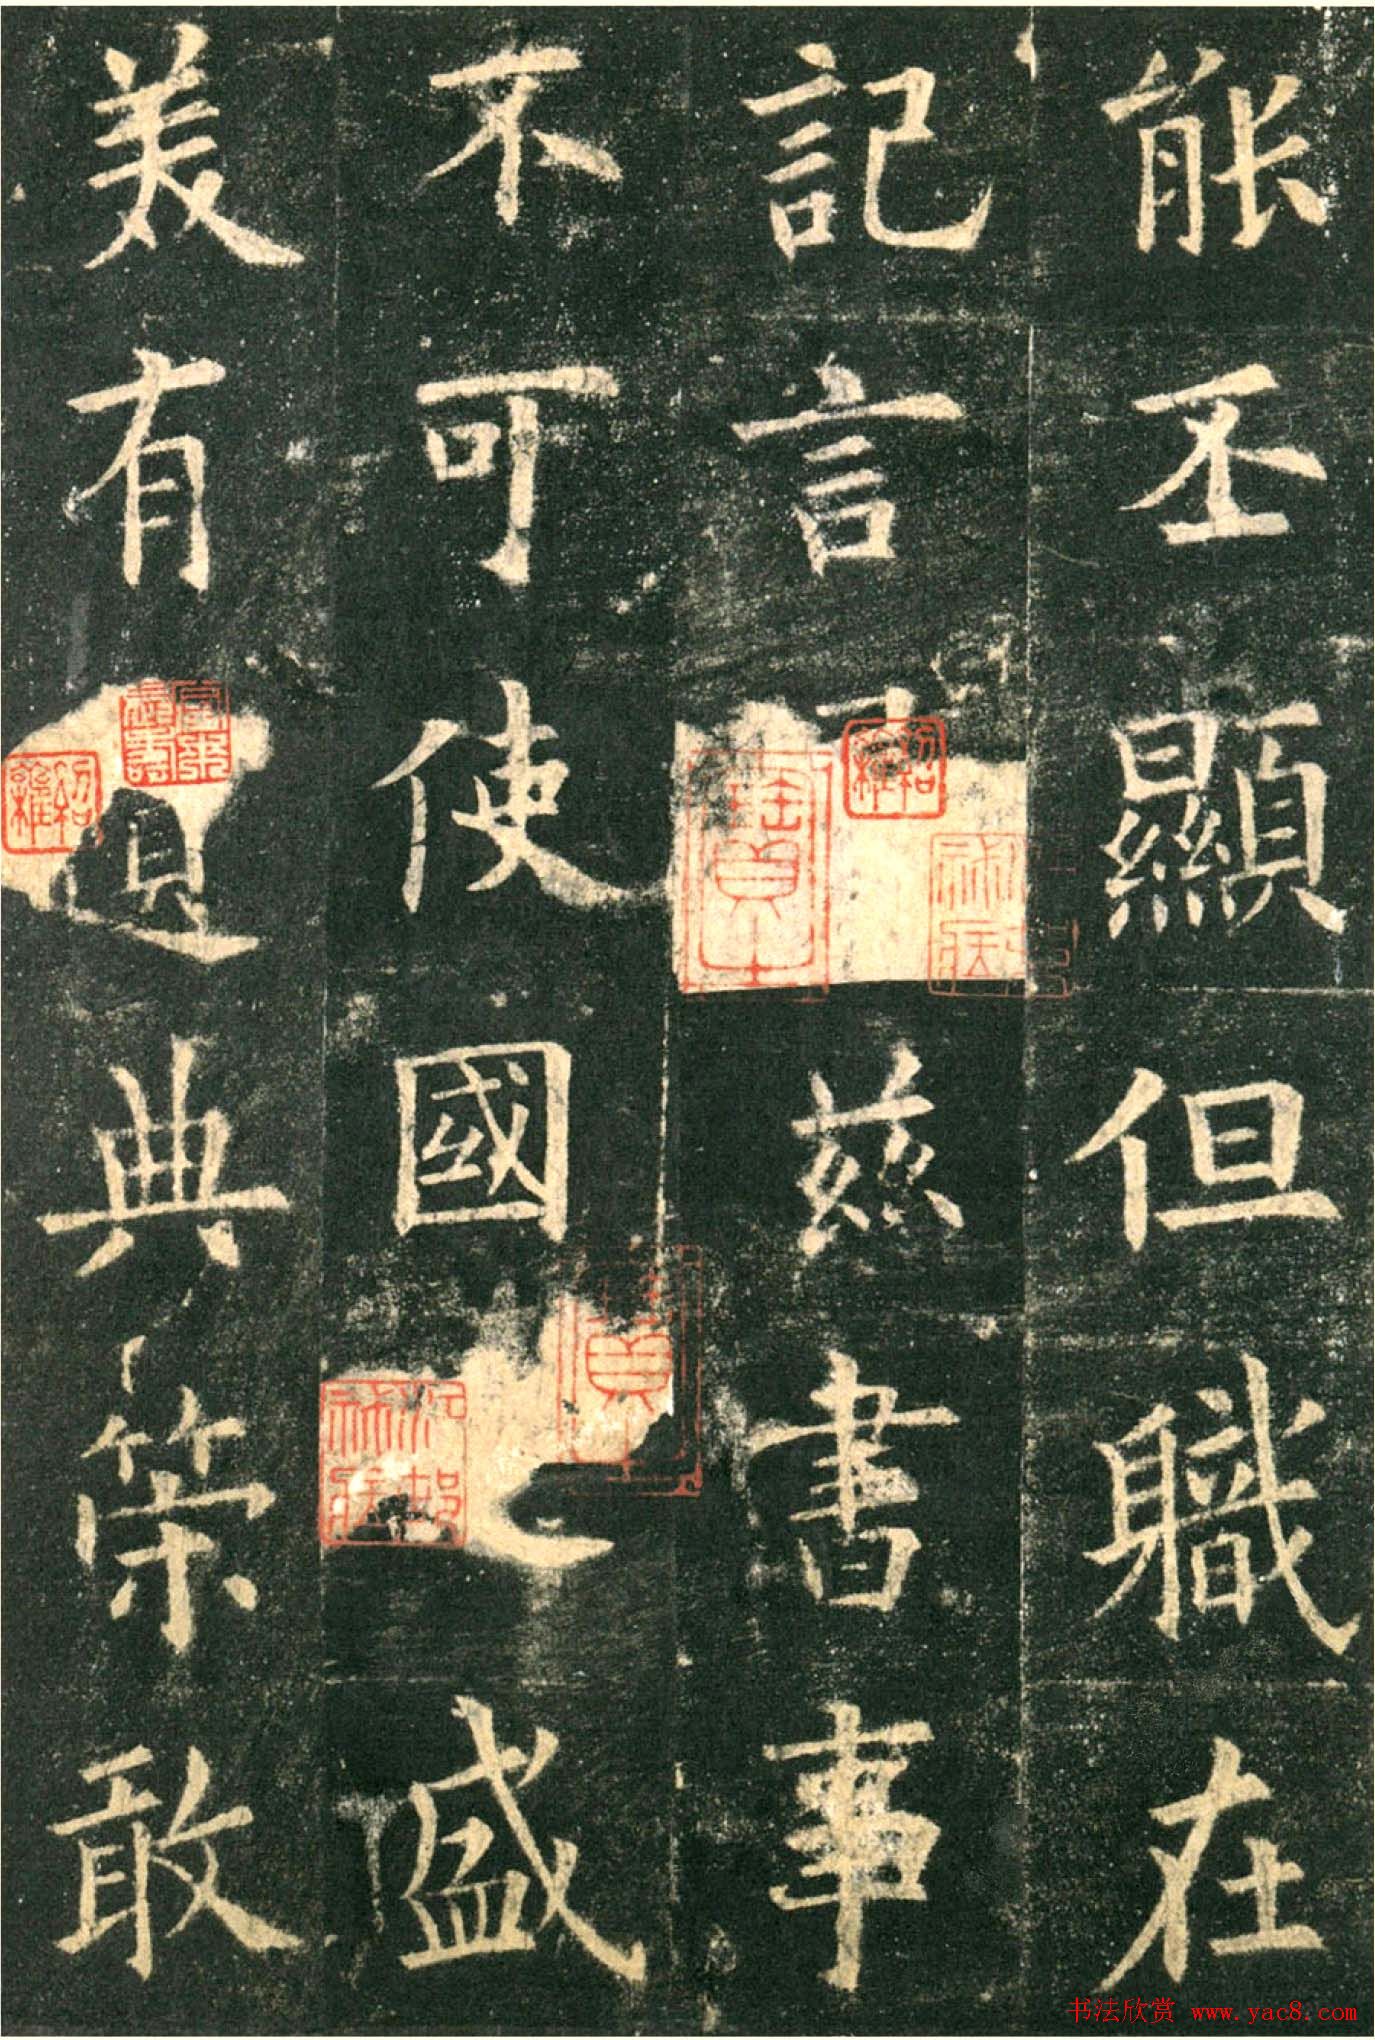 能丕顯但職在
記言兹書事
不可使國之盛
美有遺典策敢
书法欣赏 www.yac8.com